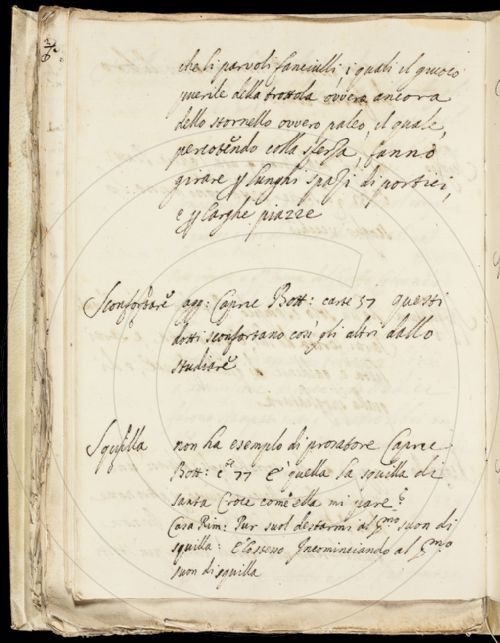 che li parvoli fanciulli i quali il giuoco
puerile della trottola ovvero ancora
dello stornello ovvero paleo, il quale,
percotendo colla sferza, fanno
girare p lunghi spazi di portici,
e p larghe piazze
Sconfortare agg: Capric Bott: carte 57 questi
dotti sconfortano così gli altri dallo
studiare
Squilla non ha esempio di prosatore Capric
Bott: ce 77 E' quella la squilla di
santa Croce come ella mi pare?
Casa Rim: Pur suol destarmi al pmo suon di
squilla: E'l osseno Incominciando al pmo
suon di squilla